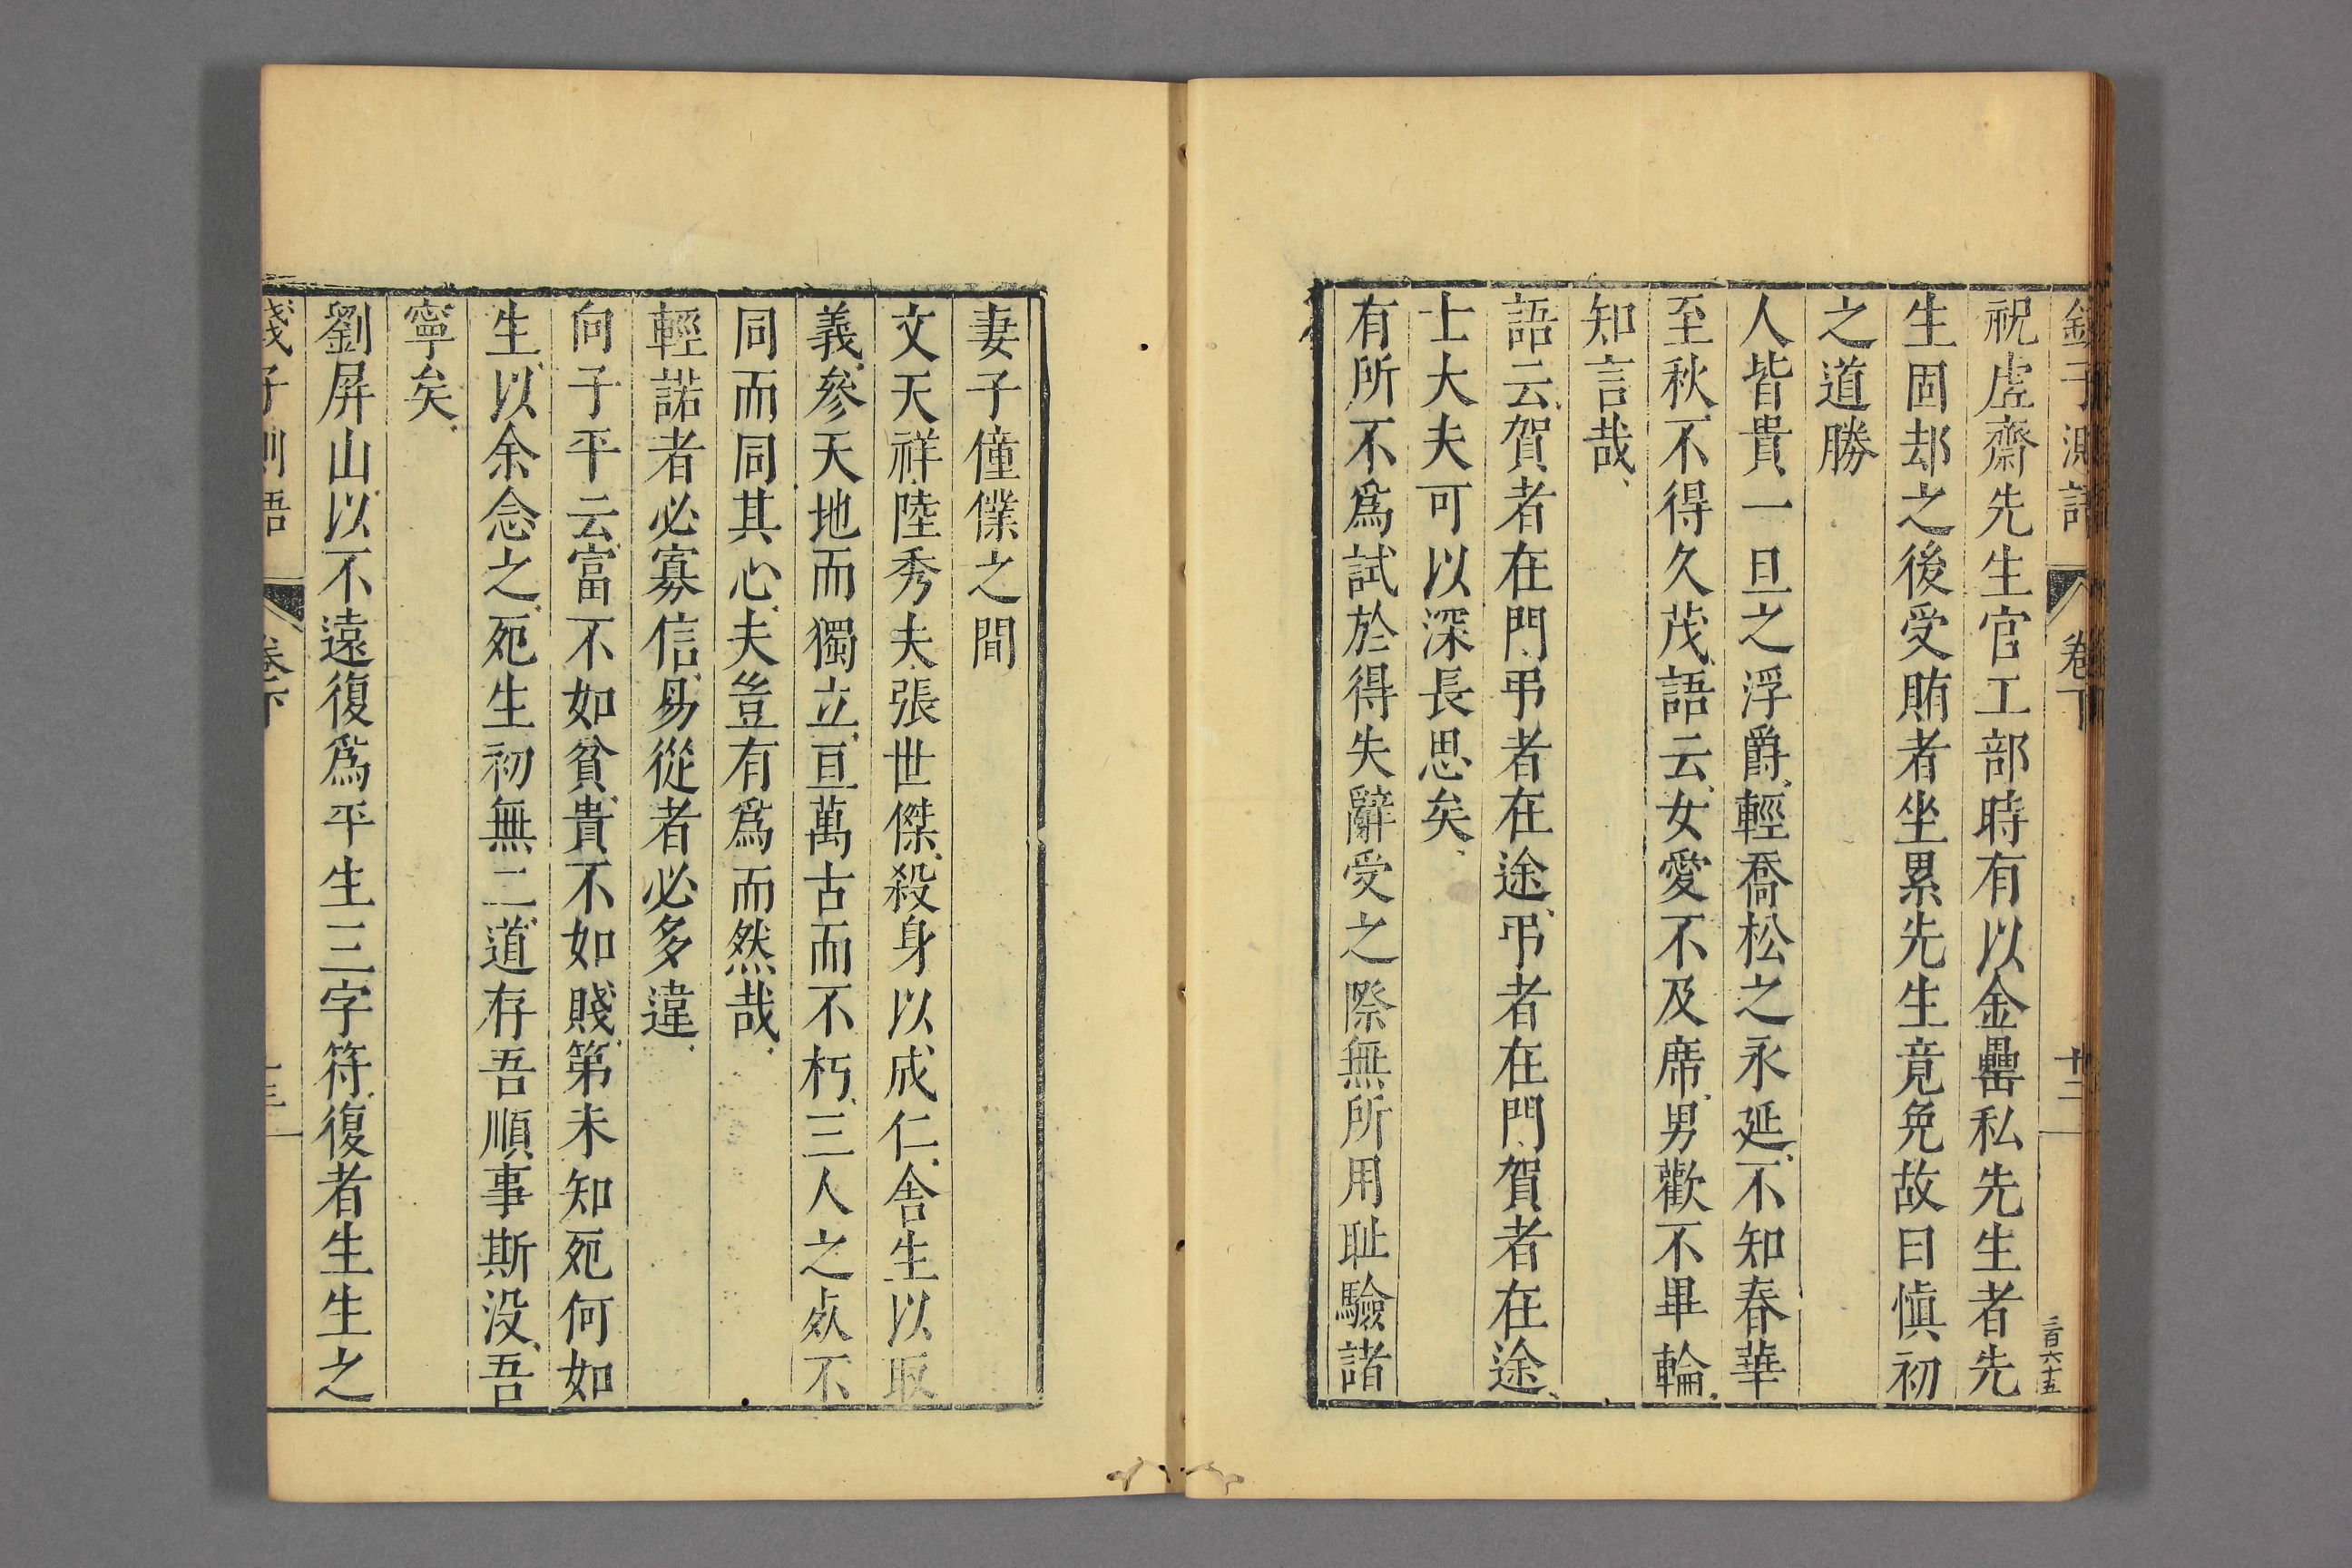 錢子測語 卷下 十二 三百六十五
祝虗齋先生官工部時有以金罍私先生者先
生固却之後受賄者坐累先生竟免故曰愼初
之道勝
人皆貴一旦之浮爵、輕喬松之永延、不知春華
至秋、不得久茂、語云、女愛不及席、男歡不畢輪、
知言哉、
語云、賀者在門、弔者在途、弔者在門、賀者在途、
士大夫可以深長思矣、
有所不爲試於得失辭受之際無所用耻驗諸
妻子僮僕之間
文天祥、陸秀夫、張世傑、殺身以成仁、舍生以取
義、參天地而獨立、亘萬古而不朽、三人之𠙚不
同而同其心、夫豈有爲而然哉、
輕諾者必寡信、易從者必多違、
向子平云、富不如貧、貴不如賤、第未知死何如
生、以余念之、死生初無二道、存吾順事斯没、吾
寧矣、
劉屏山、以不遠復爲平生三字符、復者生生之
錢子測語 卷下